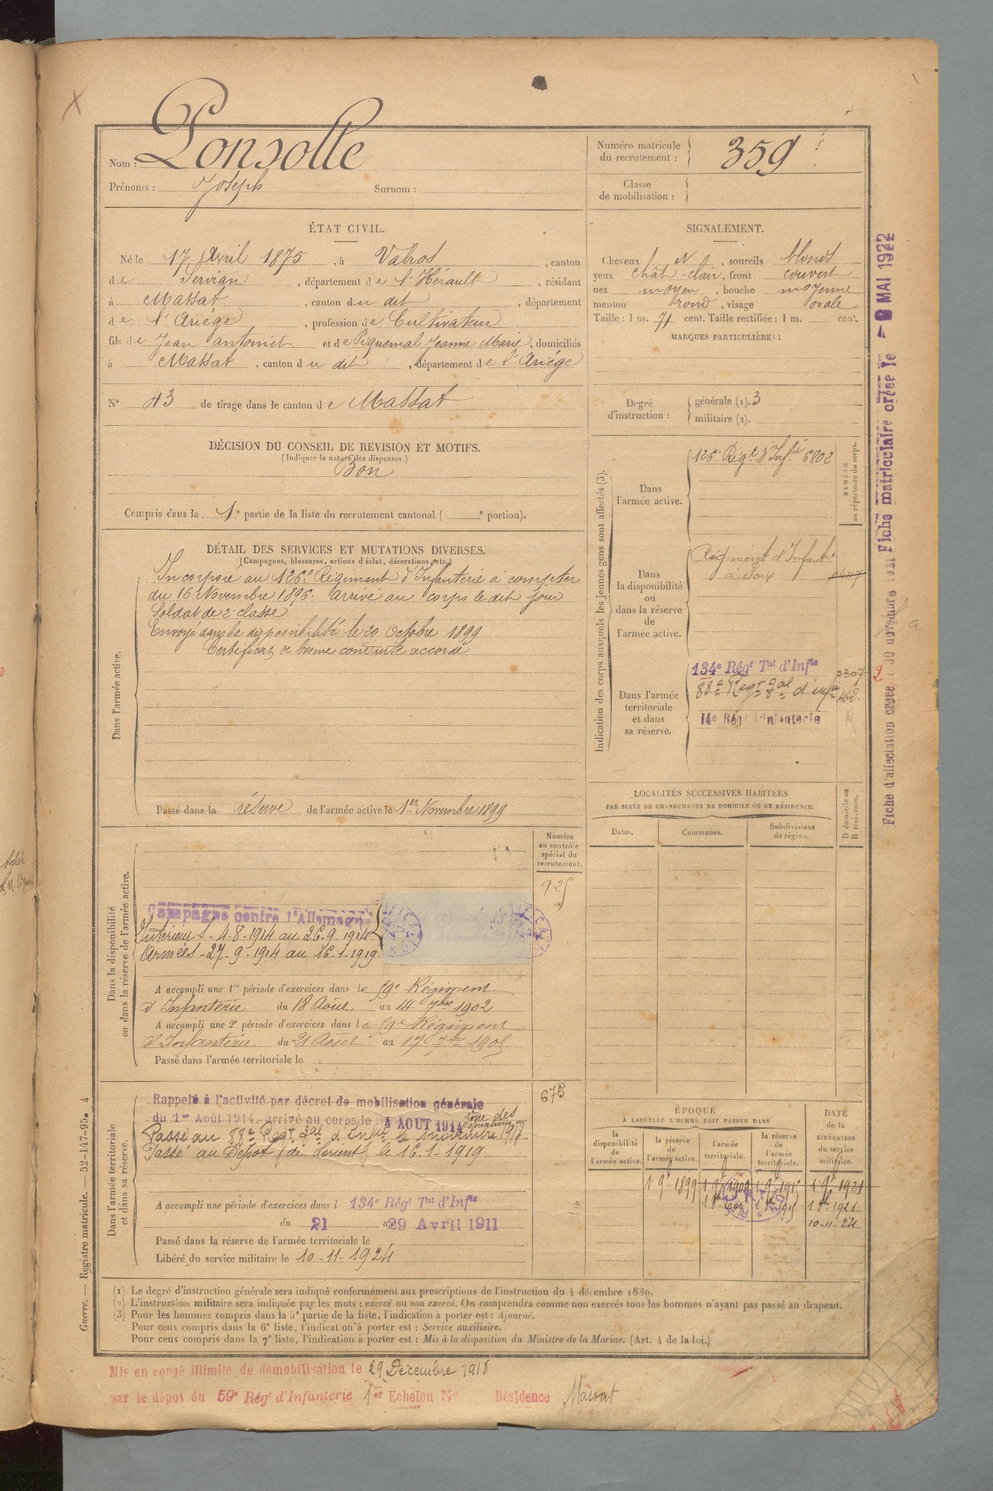 Nom : Ponsolle
Prénoms : Joseph Surnom :
Numéro matricule du recrutement : 359
Classe de mobilisation :
ÉTAT CIVIL.
Né le 17 Avril 1875, à Valros, canton
de Servian, département de l'Hérault, résidant
à Massat, canton du dit, département
de l'Ariège, profession de Cultivateur
fils de Jean Antoine et de Piquemal Jeanne Marie, domiciliés
à Massat, canton du dit, département de l'Ariège
N° 43 de tirage dans le canton de Massat
SIGNALEMENT.
Cheveux N, sourcils blonds
yeux chât-clair, front couvert
nez moyen, bouche moyenne
menton rond, visage ovale
Taille : 1 m. 71 cent. Taille rectifiée : 1 m. cent.
MARQUES PARTICULIÈRES :
Degré d'instruction : générale (1). 3
militaire (2).
DÉCISION DU CONSEIL DE REVISION ET MOTIFS.
(Indiquer la nature des dispenses.)
Bon
Compris dans la 1e partie de la liste du recrutement cantonal ( e portion).
DÉTAIL DES SERVICES ET MUTATIONS DIVERSES.
(Campagnes, blessures, actions d'éclat, décorations, etc.)
Dans l'armée active.
Incorporé au 126e Régiment d'Infanterie à compter
du 16 Novembre 1896. Arrivé au corps le dit jour
Soldat de 2e classe
Envoyé dans la disponibilité le 20 Octobre 1899
Certificat de bonne conduite accordé
Passé dans la réserve de l'armée active le 1er Novembre 1899
Indication des corps auxquels les jeunes gens sont affectés (3).
NUMÉRO au répertoire du corps.
Dans l'armée active.
126e Régt d'Infie 6802
Dans la disponibilité ou dans la réserve de l'armée active.
Régiment d'Infanterie
à Foix
Dans l'armée territoriale et dans sa réserve.
134e Régt Tal d'Infie
88e Régt gal d'infie
14e Régt Infanterie
LOCALITÉS SUCCESSIVES HABITÉES
PAR SUITE DE CHANGEMENTS DE DOMICILE OU DE RÉSIDENCE.
Dates. Communes. Subdivisions de région. D domicile ou R résidence.
Numéro au contrôle spécial du recrutement.
925
Dans la disponibilité ou dans la réserve de l'armée active.
Campagne contre l'Allemagne
Intérieur - 4-8-1914 au 26-9-1914
Armées - 27-9-1914 au 16-1-1919
A accompli une 1re période d'exercices dans le 59e Régiment
d'Infanterie du 18 Août au 14 7bre 1902
A accompli une 2e période d'exercices dans le 59e Régiment
d'Infanterie du 21 Août au 17 7bre 1905
Passé dans l'armée territoriale le
675
Dans l'armée territoriale et dans sa réserve.
Rappelé à l'activité par décret de mobilisation générale
du 1er Août 1914, arrivé au corps le 4 AOUT 1914
Passé au 88e Régt gal d'Infie le novembre 1917
Passé au Dépôt de Lorient le 16-1-1919
A accompli une période d'exercices dans l 134e Régt Tal d'Infie
du 21 au 29 Avril 1911
Passé dans la réserve de l'armée territoriale le
Libéré du service militaire le 10-11-1924
ÉPOQUE
À LAQUELLE L'HOMME DOIT PASSER DANS
la disponibilité de l'armée active. la réserve de l'armée active. l'armée territoriale. la réserve de l'armée territoriale.
DATE de la LIBÉRATION du service militaire.
1-9-1899
1-9-1921
10-11-24
(1) Le degré d'instruction générale sera indiqué conformément aux prescriptions de l'instruction du 4 décembre 1889.
(2) L'instruction militaire sera indiquée par les mots : exercé ou non exercé. On comprendra comme non exercés tous les hommes n'ayant pas passé au drapeau.
(3) Pour les hommes compris dans la 5e partie de la liste, l'indication à porter est : Ajourné.
Pour ceux compris dans la 6e liste, l'indication à porter est : Service auxiliaire.
Pour ceux compris dans la 7e liste, l'indication à porter est : Mis à la disposition du Ministre de la Marine. (Art. 4 de la loi.)
Mis en congé illimité de démobilisation le 29 Décembre 1918
par le dépôt du 59e Régt d'Infanterie 1er Echelon N° Résidence Massat
Guerre. — Registre matricule. — 52-147-95. 4
Fiche d'affectation créée 30 novembre 1921 Fiche matriculaire créée le - 9 MAI 1922